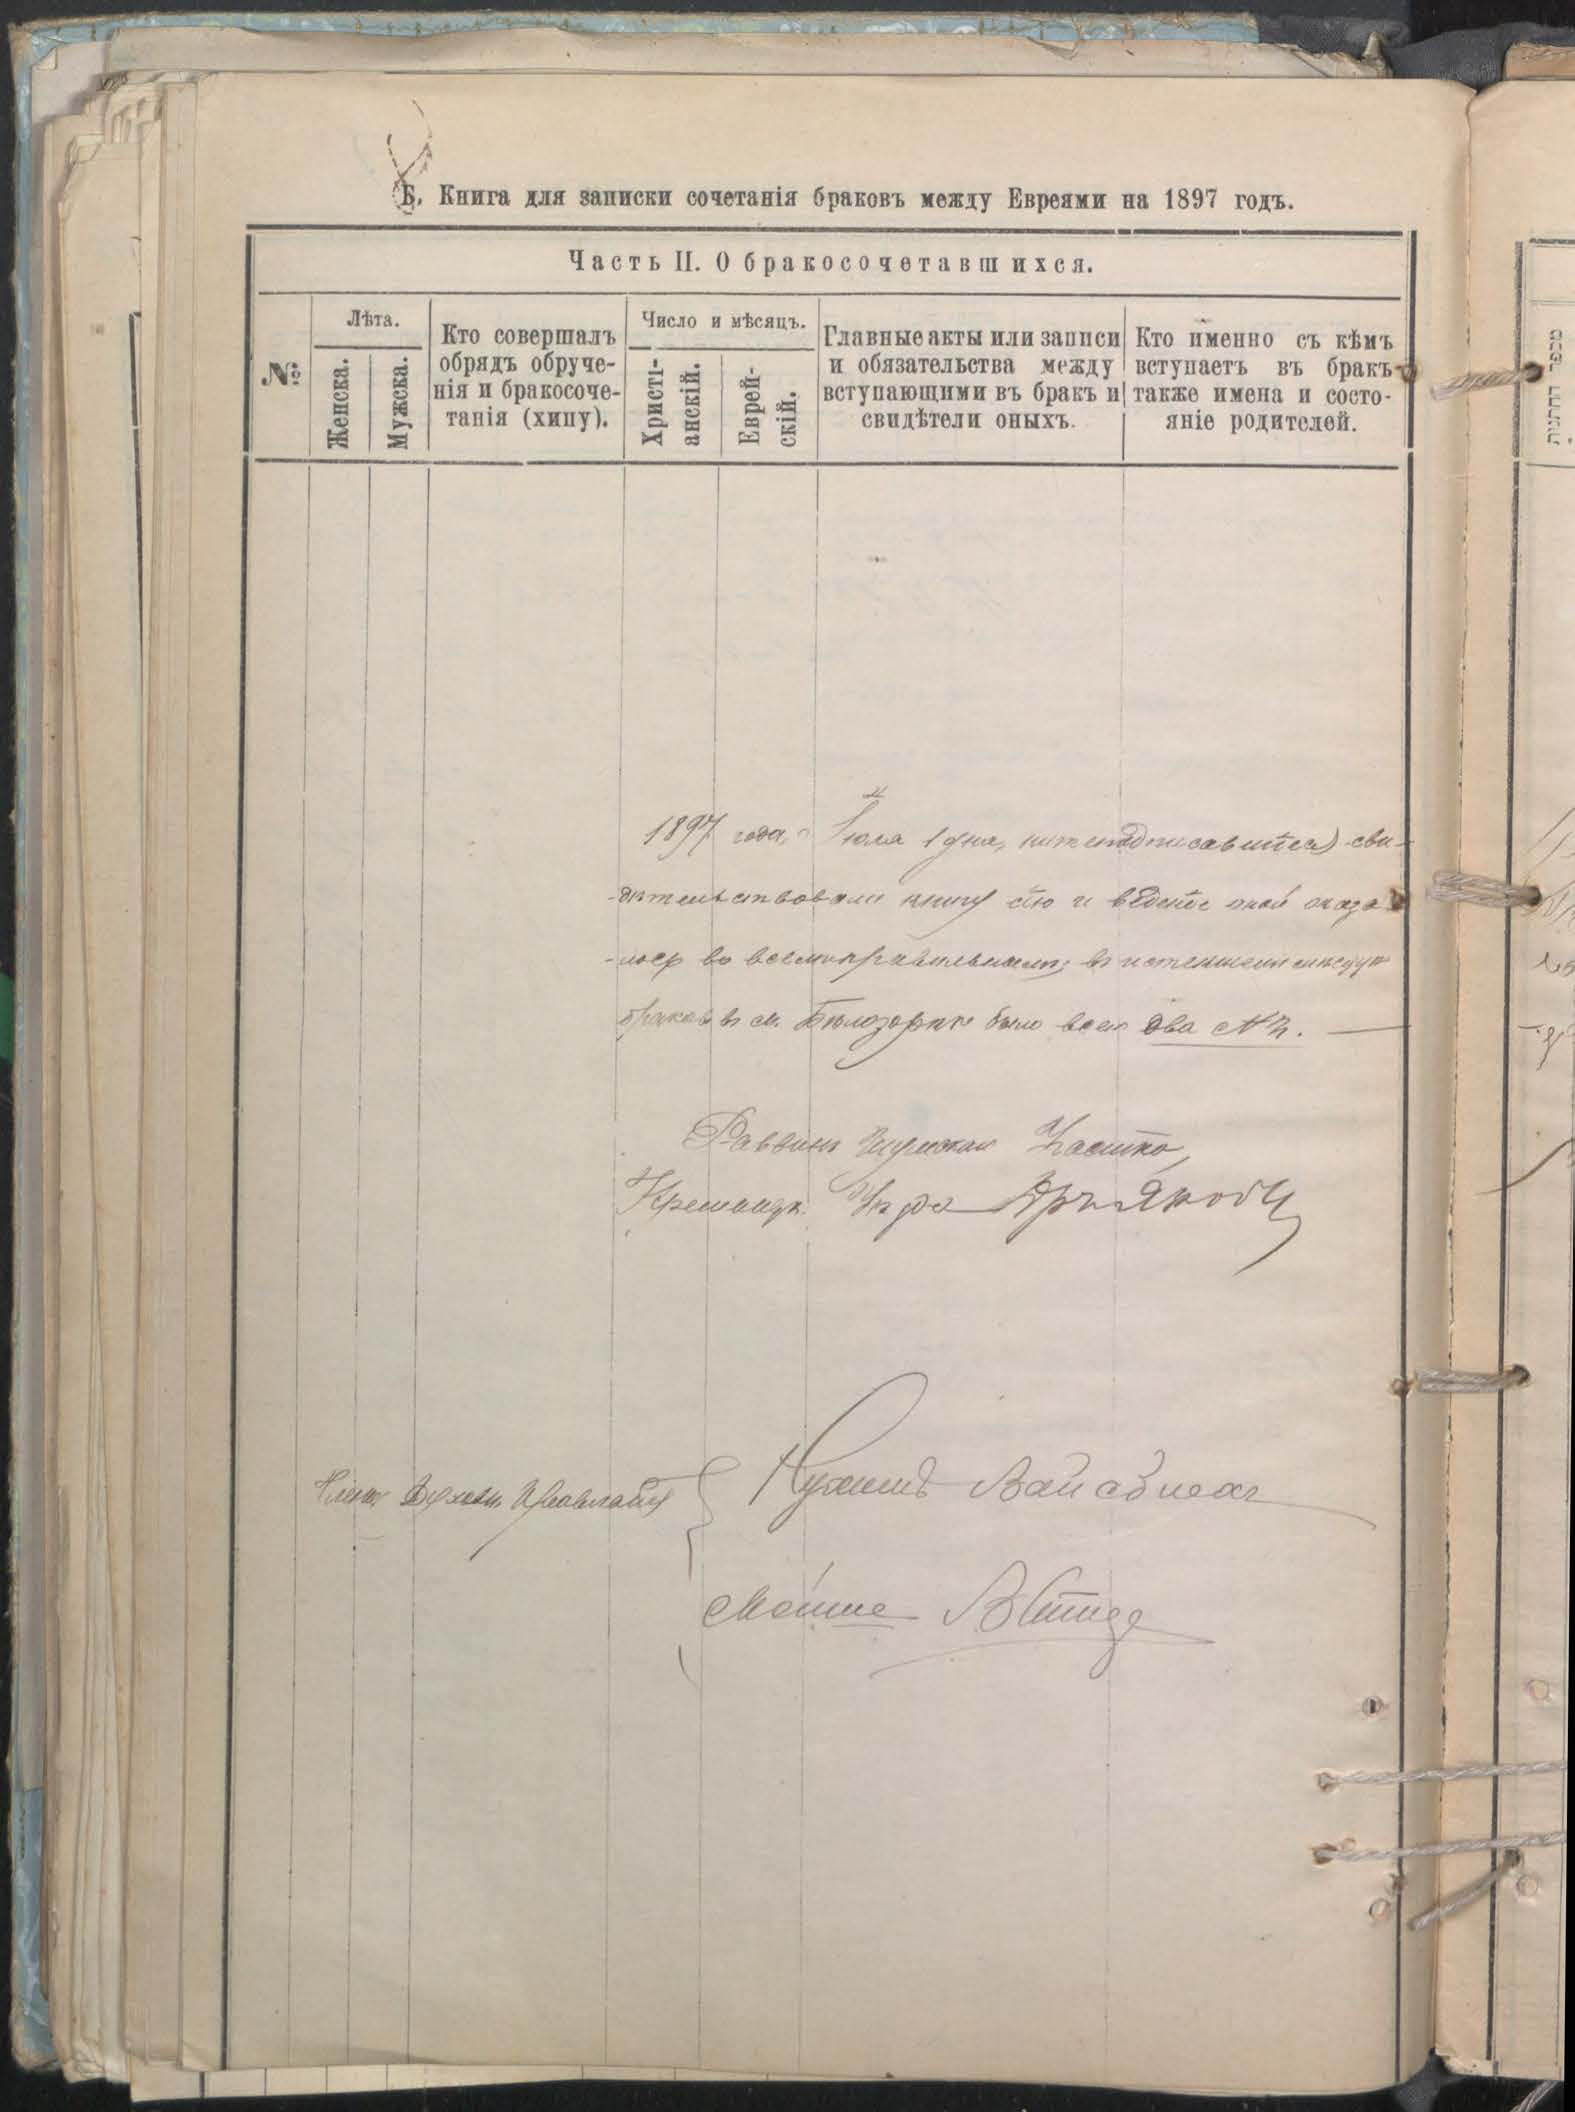 Б. Книга для записки сочетанія браковъ между Евреями на 1897 годъ.
Часть II. О бракосочетавшихся.
№
Лѣта.
Женска.
Мужска.
Кто совершалъ
обрядъ обруче-
нія и бракосоче-
танія (хипу).
Число и мѣсяцъ.
Христі-
анскій.
Еврей-
скій.
Главные акты или записи
и обязательства между
вступающими въ бракъ и
свидѣтели оныхъ.
Кто именно съ кѣмъ
вступаетъ въ бракъ
также имена и состо-
яніе родителей.
1897 года, Іюля 1 дня, нижеподписавшіеся сви-
-дѣтельствовали книгу сію и веденіе оной оказа-
-лось во всемъ правильнымъ; въ истекшемъ мѣсяцѣ
браковъ въ м. Бѣлозоркѣ было всего два №№.
Раввинъ
Кременецк.
Членъ Духовн. Правленія
Нухимъ Вайсблатъ
Мойше